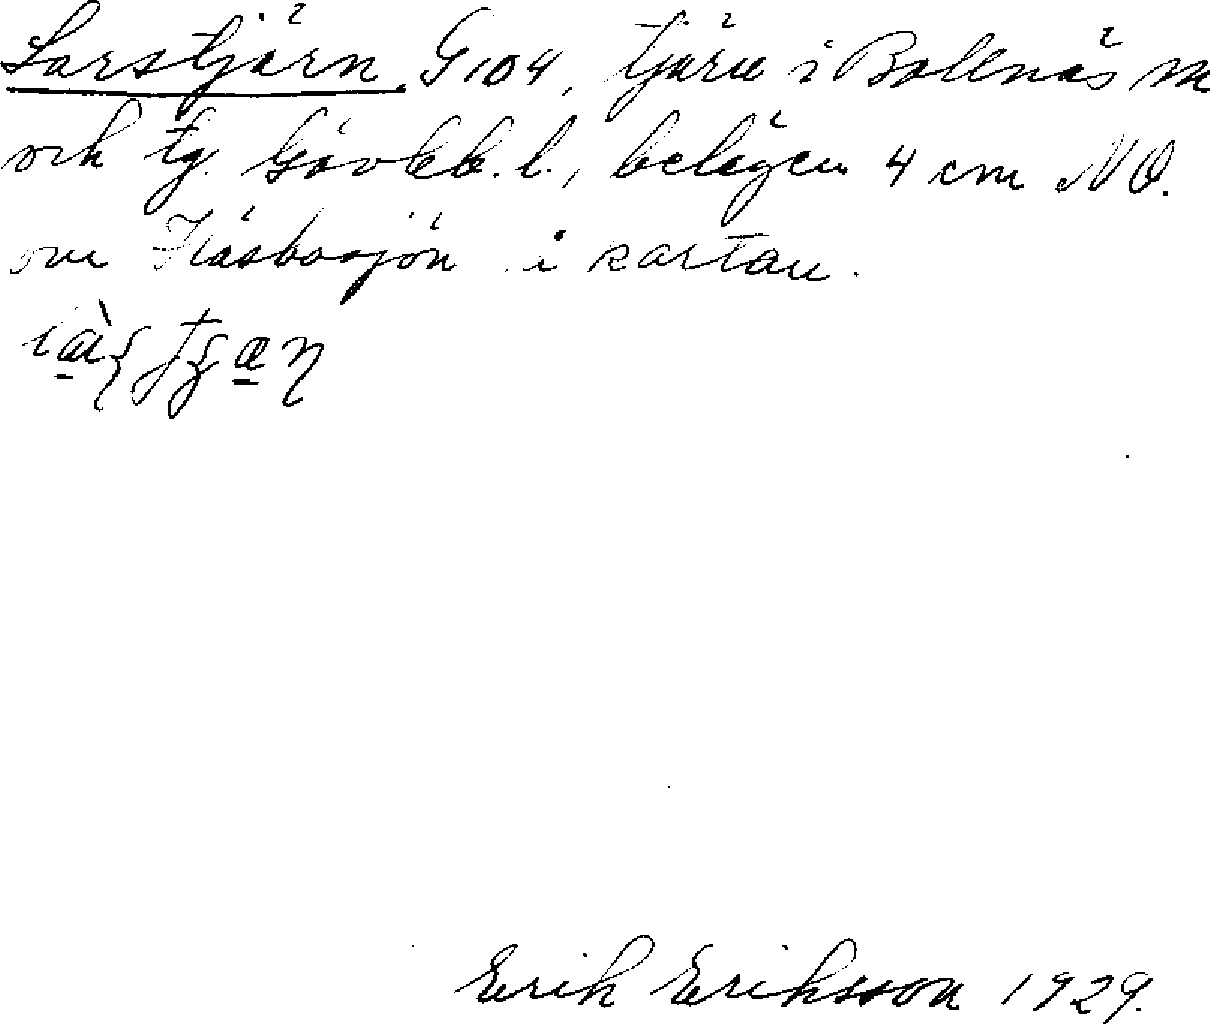 Larstjärn, G104, tjärn i Bollnäs sn
och tg. Gävlab. l., belägen 4 cm NO.
om Häsbosjön i kartan.
Erik Eriksson 1929.